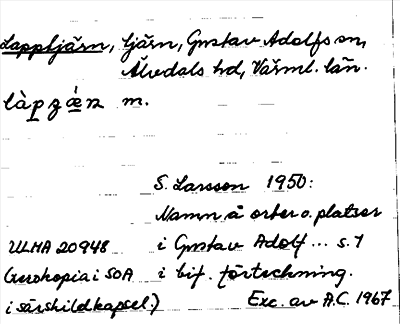 Lapptjärn, tjärn, Gustav Adolfs sn,
Älvdals hd, Värml. län.
m.
S. Larsson 1950:
Namn å orter o. platser
ULMA 20948 i Gustav Adolf ... s. 7
(Xerokopia i SOA i bif. förteckning.
i särskild kapsel.) Exc. av A.C. 1967